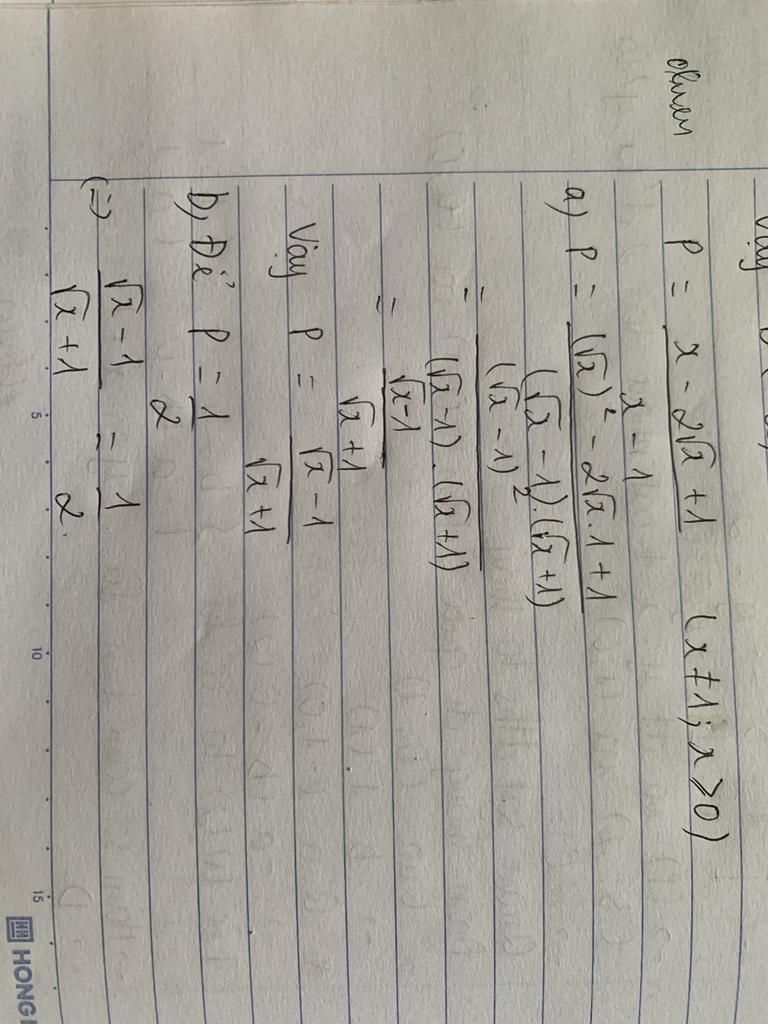 Vậy
P = x - 2√x + 1 / x - 1 (x ≠ 1; x ⩾ 0)
a) P = (√x)² - 2√x.1 + 1 / (√x - 1).(√x + 1)
= (√x - 1)² / (√x - 1).(√x + 1)
= √x - 1 / √x + 1
Vậy P = √x - 1 / √x + 1
b, Để P = 1 / 2
(=) √x - 1 / √x + 1 = 1 / 2.
5 10 15
HONG